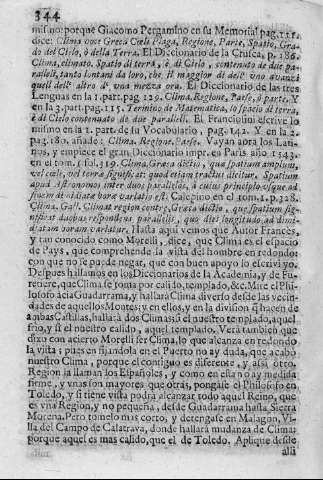 344
mismo: porque Giacomo Pergamino en su Memorial pag. 111.
dice: Clima voce Greca Cœli Plaga, Regione, Parte, Spatio, Gra-
do del Cielo, ò della Terra. El Diccionario de la Crusca, p. 186.
Clima, climato. Spatio di terra, è di Cielo, contenuto de due pa-
ralleli, tanto lontani da loro, che il maggior di dell' uno avanzi
quell dell' altro di una mezza ora. El Diccionario de las tres
Lenguas en la 1. part. pag. 129. Clima, Regione, Parte, ò parti. Y
en la 3. part. pag. 115. Termino de Matematico, lo spacio di terra,
è di Cielo contenuto de due paralleli. El Franciosini escrive lo
mismo en la 1. part. de su Vocabulario, pag. 142. Y en la 2.
pag. 180. añade: Clima. Regione, Parte. Vayan aora los Lati-
nos, y empiece el gran Diccionario impr. en Paris año 1543.
en el tom. 1. fol. 319. Clima, Græca dictio, quæ spatium ampliùm,
vel cœli, vel terræ significat: quod etiam tractus dicitur. Spatium
apud Astronomos inter duos parallelos, à cuius principio usque ad
finem dimidiatæ horæ variatio est. Calepino en el tom. 1. p. 328.
Clima. Gal. Climat region contre, Græca dictio, quæ spatium sig-
nificat duobus respondens parallelis, quo diei longitudo ad dimi-
diatam horam variatur. Hasta aqui vemos que Autor Frances,
y tan conocido como Morelli, dice, que Clima es el espacio
de Pays, que comprehende la vista del hombre en redondo:
con que no le puede negar, que con buen apoyo lo escrivi yo.
Despues hallamos en los Diccionarios de la Academia, y de Fu-
retiere, que Clima se toma por calido, templado, &c. Mire el Phi-
losofo àcia Guadarrama, y hallarà Clima diverso desde las vecin-
dades de aquellos Montes; y en ellos, y en la division q̃ hacen de
ambas Castillas, hallarà dos Climas: si el nuestro templado, aquel
frio, y si el nuestro calido, aquel templado. Verà tambien que
dixo con acierto Morelli ser Clima, lo que alcanza en redondo
la vista; pues en fixandola en el Puerto no ay duda, que acabò
nuestro Clima, porque el contiguo es diferente, y assi otro.
Region la llaman los Españoles, y como en esta no ay medida
firme, y unas son mayores que otras, pongase el Philosofo en
Toledo, y si tiene vista podrà alcanzar todo aquel Reino, que
es una Region, y no pequeña, desde Guadarrama hasta Sierra
Morena. Pero tomelo mas corto, y detengase en Malagon, Vi-
lla del Campo de Calatrava, donde hallarà mudanza de Clima;
porque aquel es mas calido, que el de Toledo. Aplique desde
alli